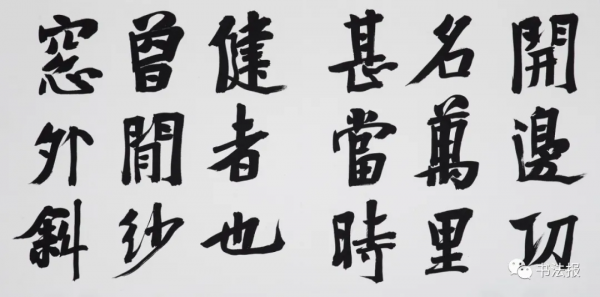 開邊功
名萬里
甚當時
健者也
曾閒紗
窓外斜
书法报